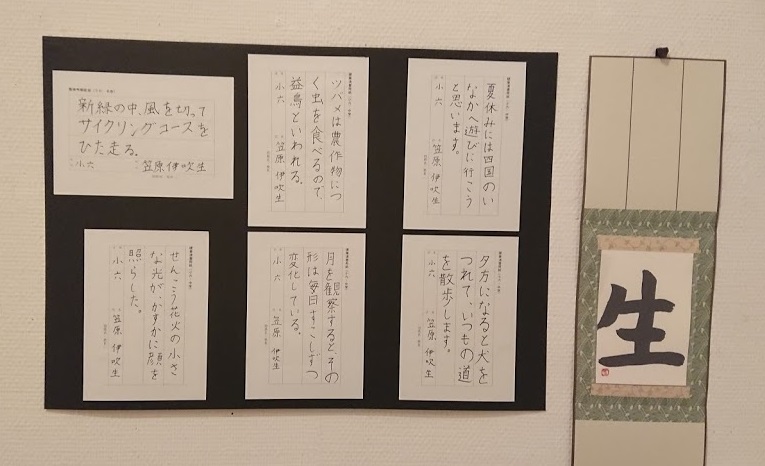 新緑の中、風を切って
サイクリングコースを
ひた走る。
小六
笠原伊吹生
ツバメは農作物につ
く虫を食べるので、
益鳥といわれる。
小六
笠原伊吹生
夏休みには四国のい
なかへ遊びに行こう
と思います。
小六
笠原伊吹生
せんこう花火の小さ
な光が、かすかに顔を
照らした。
小六
笠原伊吹生
月を観察すると、その
形は毎日すこしずつ
変化している。
小六
笠原伊吹生
夕方になると犬を
つれて、いつもの道
を散歩します。
小六
笠原伊吹生
生